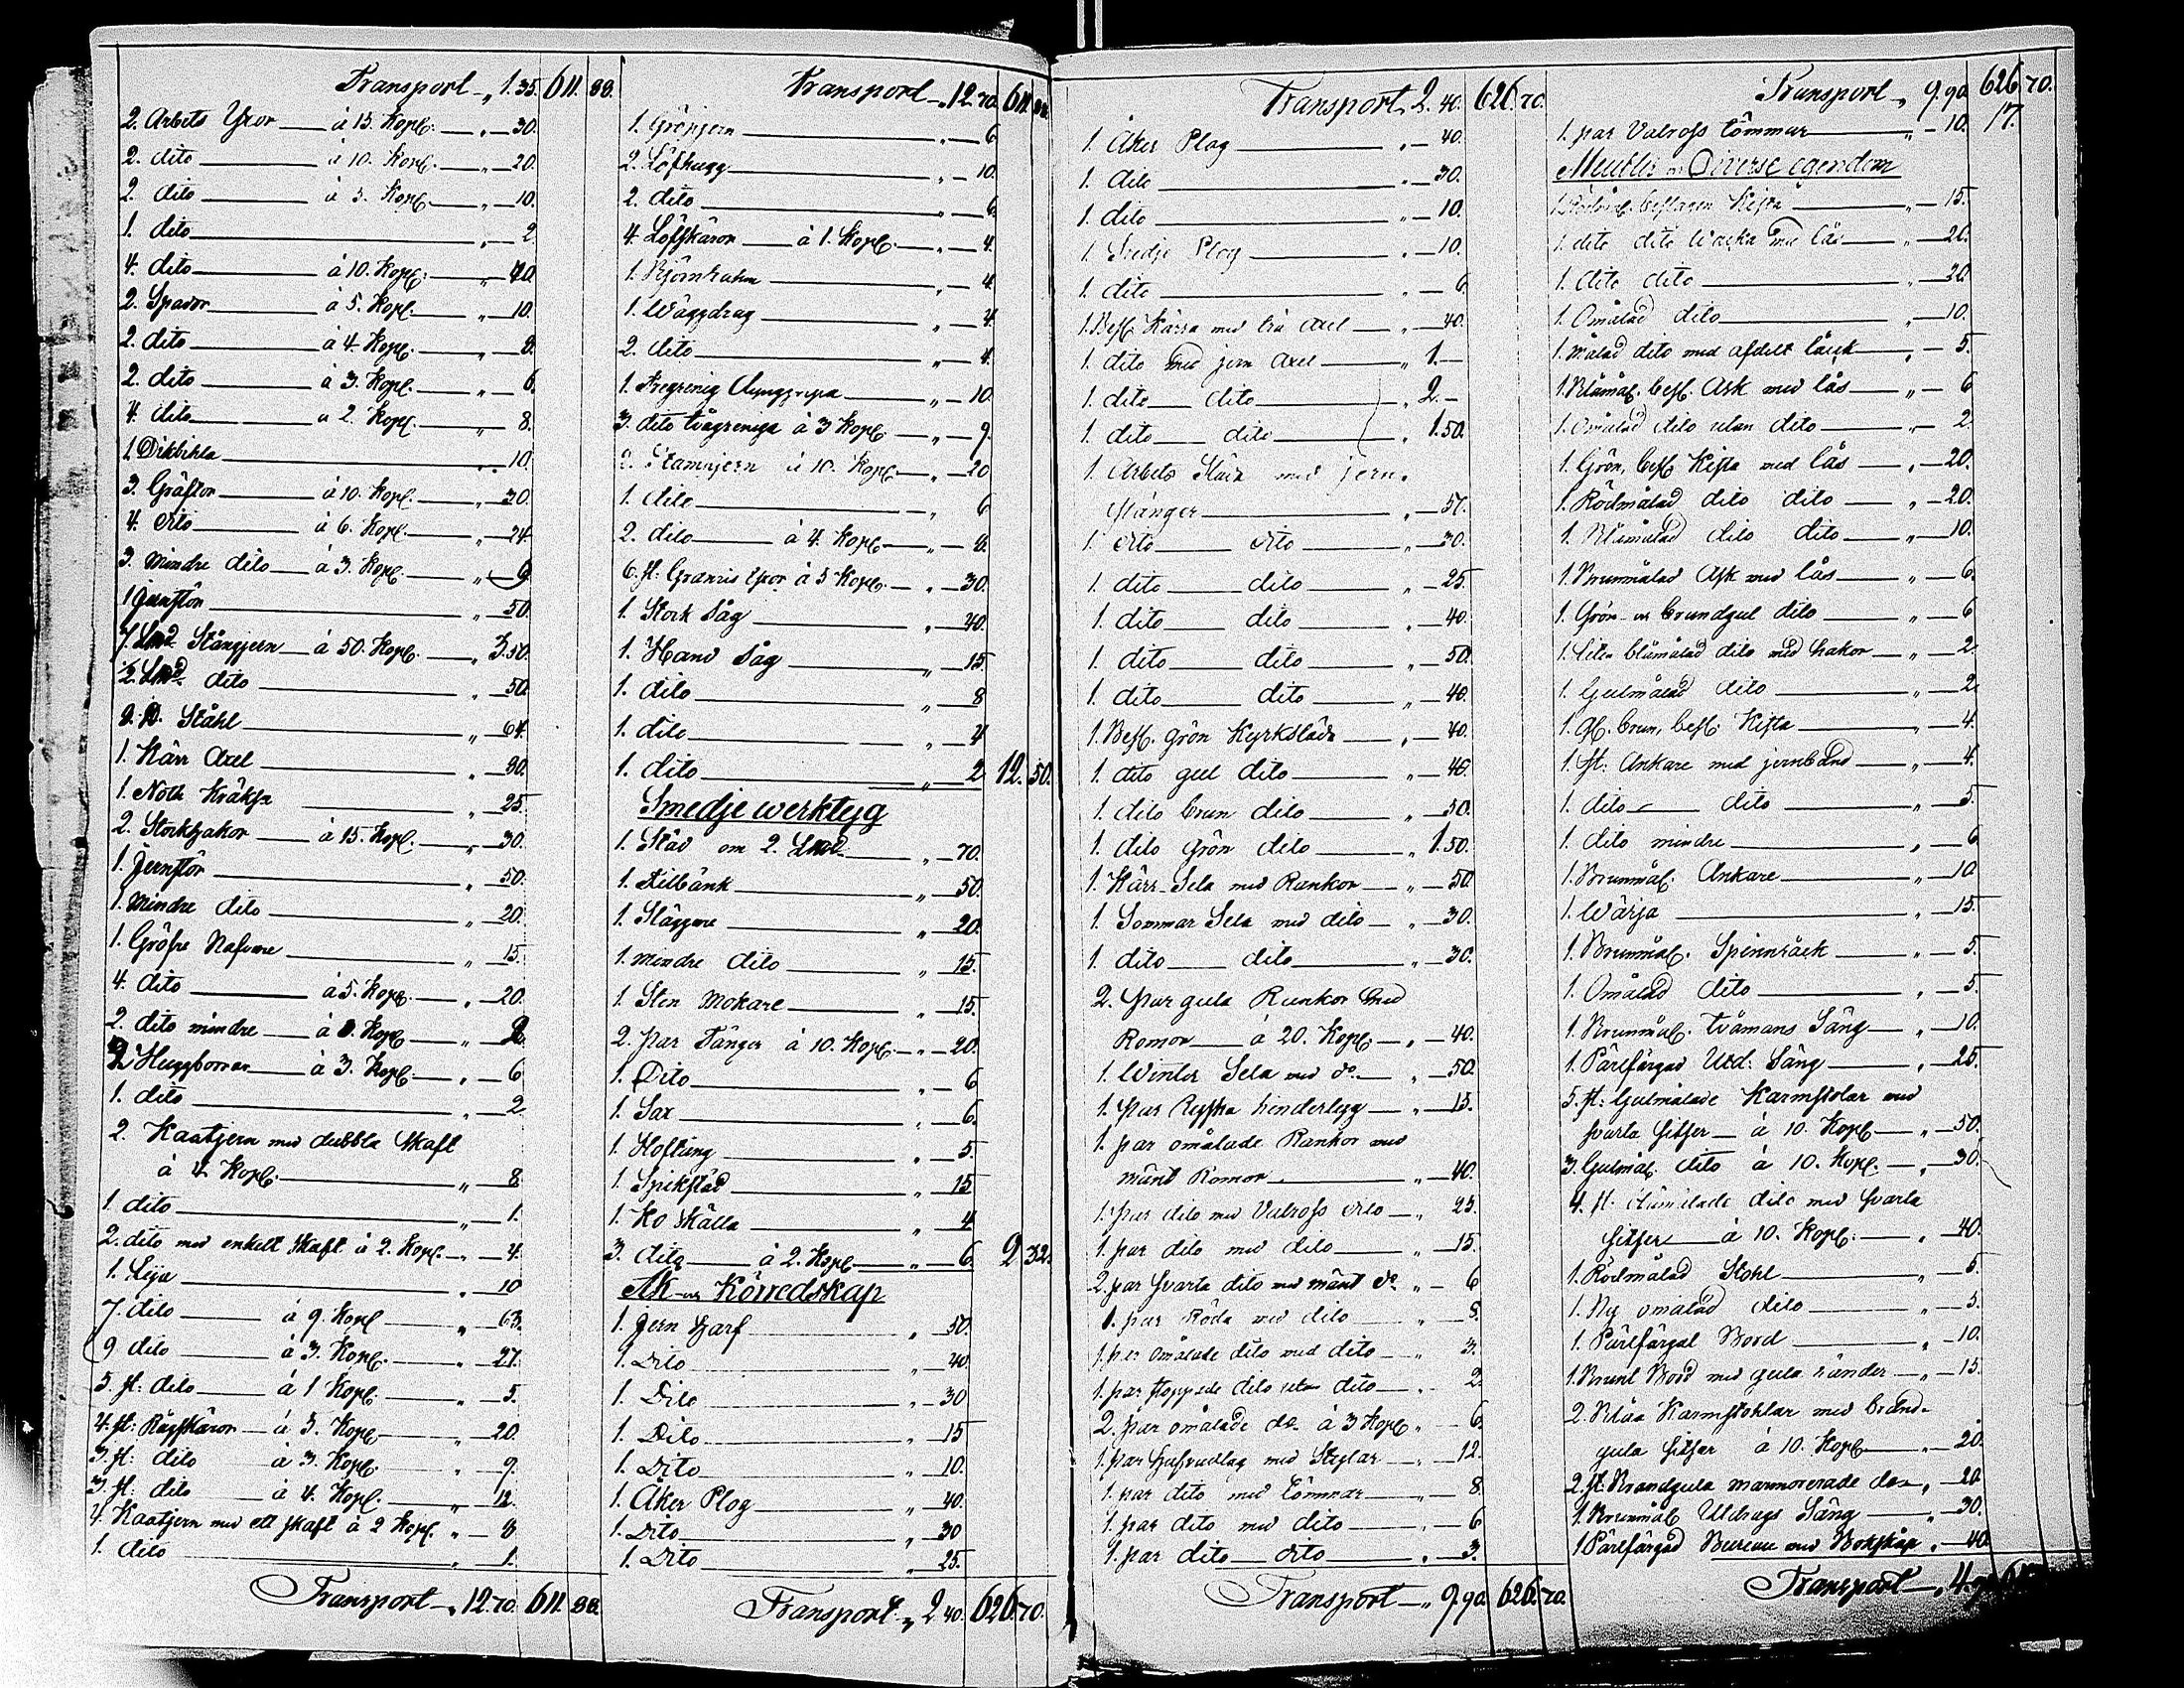 Transport „ 1. 35. 611. 88.
2. Arbets Yxor à 15. Kopk: „ 30.
2. dito à 10. Kopk: „ 20.
2. dito à 5. Kopk: „ 10.
1. dito „ 2.
4. dito à 10. Kopk: „ 40.
2. Spador à 5. Kopk: „ 10.
2. dito à 4. Kopk: „ 8.
2. dito à 3. Kopk: „ 6.
4. dito à 2. Kopk: „ 8.
1. Dikbihla „ 10.
3. Gräftor à 10. Kopk: „ 30.
4. dito à 6. Kopk: „ 24.
3. Mindre dito à 3. Kopk: „ 9.
1. Jernstör „ 50.
7. Lmd Stångjern à 50. Kopk: „ 3. 50.
1/2 Lmd dito „ 50.
Ståhl „ 64.
1. Kärr Axel „ 90.
1. Noth Kräkja „ 25.
2. Storkhakor à 15. Kopk: „ 30.
1. Jernstör „ 50.
1. Mindre dito „ 20.
1. Gröfre Nafvare „ 15.
4. dito à 5. Kopk: „ 20.
2. dito mindre à Kopk:
2. Huggborrar à 3. Kopk: „ 6
1. dito „ 2
2. Kaatjern med dubbla skaft
à 4 Kopk: „ 8
1. dito „ 1.
2. dito med enkelt skaft à 2. Kopk: „ 4
1. Lija „ 10
7. dito à 9. Kopk „ 63.
9 dito à 3. Kopk: „ 27.
5. st: dito à 1 Kopk: „ 5.
4. st: Rågskäror à 5. Kopk: „ 20.
3. st: dito à 3. Kopk: „ 9.
3. st: dito à 4. Kopk: „ 12.
4. Kaatjern med ett skaft à 2 Kopk: „ 8
1. dito „ 1.
Transport „ 12. 70. 611. 88.
Transport „ 12. 70. 611. 88.
1. Grepjern „ 6
2. Löfhugg „ 10.
2. dito „ 6
4. Löfskäror à 1. Kopk: „ 4.
1. „ 4.
1. Wäggdrag „ 4.
2. dito „ 4.
1. Tregrenig Dynggrepa „ 10.
3. dito tvågreniga à 3 Kopk: „ 9.
2. Stamnjern à 10. Kopk: „ 20
1. dito „ 6
2. dito à 4. Kopk „ 8.
6. st: Granris Yxor à 5 Kopk: „ 30.
1. Stock Såg „ 40.
1. Hand Såg „ 15.
1. dito „ 8
1. dito „ 4
1. dito „ 2 12. 50.
Smedje werktyg
1. Städ om 2. Lmd „ 70.
1. Filbänk „ 50.
1. Släggare „ 20.
1. mindre dito „ 15.
1. Sten Mokare „ 15.
2. par Tänger à 10. Kopk: „ 20.
1. Dito „ 6
1. Sax „ 6.
1. Hoftång „ 5.
1. Spikstäd „ 15
1. Ko skälla „ 4
3. dito à 2. Kopk „ 6. 2 32.
Åk och Körredskap
1. Jern harf „ 50.
1. Dito „ 40.
1. Dito „ 30
1. Dito „ 15
1. Dito „ 10.
1. Åker Plog „ 40.
1. Dito „ 30
1. Dito „ 25.
Transport „ 2 40. 626. 70.
Transport „ 2. 40. 626. 70.
1. Åker Plog „ 40.
1. dito „ 30.
1. dito „ 10.
1. Plog „ 10.
1. dito „ 6.
1. Besl: Kärra med trä axel „ 40.
1. dito med jern axel „ 1.
1. dito dito „ 2.
1. dito dito „ 1. 50.
1. Arbets Släda med jern-
stänger „ 57.
1. dito dito „ 30.
1. dito dito „ 25.
1. dito dito „ 40.
1. dito dito „ 50.
1. dito dito „ 40.
1. Besl. grön Kyrksläda „ 40.
1. dito gul dito „ 40.
1. dito brun dito „ 50.
1. dito grön dito „ 1. 50.
1. Kärr-Sela med Rankor „ 50.
1. Sommar Sela med dito „ 30.
1. dito dito „ 30.
2. par gula Rankor med
Romor à 20. Kopk: „ 40.
1. Winter Sela med do „ 50.
1. par Ryska hindertyg „ 15.
1. par omålade Rankor med
mänt Romor „ 40.
1. par dito med Valross dito „ 25.
1. par dito med dito „ 15.
2. par svarta dito med mänt do „ 6
1. par Röda med dito „ 5.
1. par omålade dito med dito „ 3.
1. par stoppade dito utan dito „ 2.
2. par omålade do à 3 Kopk „ 6
1. par hufvudlag med Styglar „ 12.
1. par dito med tömmar „ 8
1. par dito med dito „ 6
1. par dito dito „ 3.
Transport „ 9. 90. 626. 70.
Transport „ 9. 90. 626. 70.
1. par Valross tömmar „ 10. 17.
Meubler och Diverse egendom
1. Rödmål. beslagen Kista „ 15.
1. dito dito Wacka med lås „ 20.
1. dito dito „ 30.
1. Omålad dito „ 10.
1. Målad dito med afdelt låck „ 5.
1. Blåmål. besl. Ask med lås „ 6
1. Omålad dito utan dito „ 2.
1. Grön, besl. Kista med lås „ 20.
1. Rödmålad dito dito „ 20.
1. Blåmålad dito dito „ 10.
1. Brunmålad Ask med lås „ 6
1. Grön och brandgul dito „ 6
1. liten blåmålad dito med hakor „ 2
1. Gulmålad dito „ 2
1. gl. brun, besl. Kista „ 4.
1. st: Ankare med jernband „ 4.
1. dito dito „ 5.
1. dito mindre „ 6
1. Brunmål. Ankare „ 10
1. Wärja „ 15.
1. Brunmål. Spinnråck „ 5.
1. Omålad dito „ 5.
1. Brunmål. tvåmans Säng „ 10.
1. Pärlfärgad Utd. Säng „ 25.
5. st: Gulmålade Karmstolar med
svarta sitser à 10. Kopk „ 50.
3. Gulmål. dito à 10. Kopk. „ 30.
4. st. dito med svarta
sitser à 10. Kopk: „ 40.
1. Rödmålad Stohl „ 5.
1. Ny omålad dito „ 5.
1. Pärlfärgat Bord „ 10.
1. Brunt Bord med gula ränder „ 15.
2. Blåa Karmstohlar med brand-
gula sitser à 10. Kopk „ 20.
2. st. Brandgula marmorerade do „ 20
1. Brunmål. Utdrags Säng „ 30.
1. Pärlfärgad Bureau med Bokskåp „ 40.
Transport „ 4.